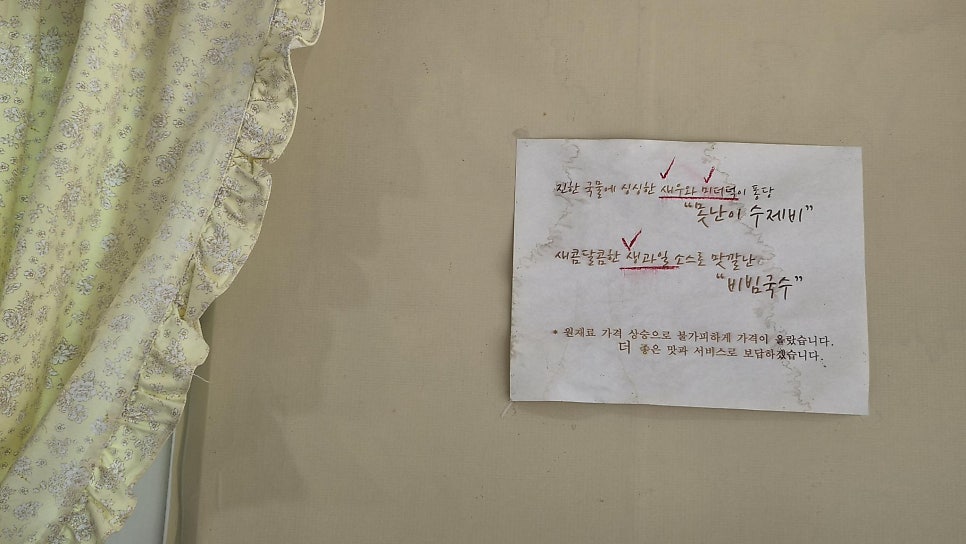 진한 국물에 싱싱한 새우와 미더덕이 퐁당
“못난이 수제비”
새콤달콤한 생과일 소스로 맛깔난
“비빔국수”
* 원재료 가격 상승으로 불가피하게 가격이 올랐습니다.
더 좋은 맛과 서비스로 보답하겠습니다.